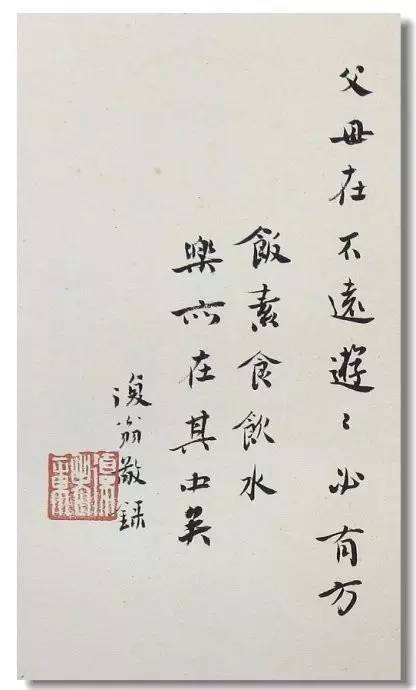 父母在不遠遊〻必有方
飯素食飲水
樂亦在其中矣
翁敬録